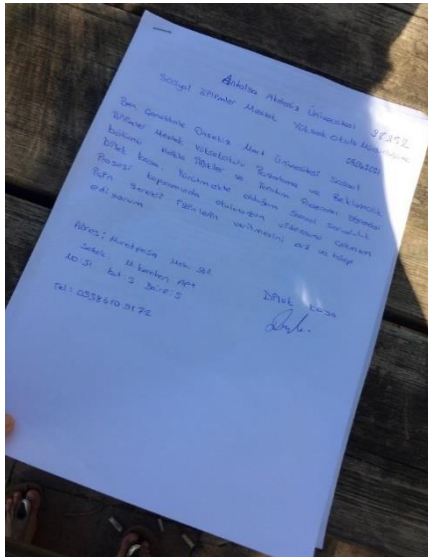 Antalya Akdeniz Üniversitesi
Sosyal Bilimler Meslek Yüksek Okulu Müdürlüğüne
Ben Çanakkale Onsekiz Mart Üniversitesi Sosyal
Bilimler Meslek Yüksekokulu Pazarlama ve Reklamcılık
bölümü Halkla İlişkiler ve Tanıtım Programı öğrencisi
Dilek Kaya. Yürütmekte olduğum sosyal sorumluluk
Projesi kapsamında okulunuzun
için gerekli izinlerin verilmesini arz ve talep
ediyorum
Adres: Muratpaşa
Sokak Apt
No:31 kat:3 Daire:5
Tel: 0538610 3172
Dilek Kaya